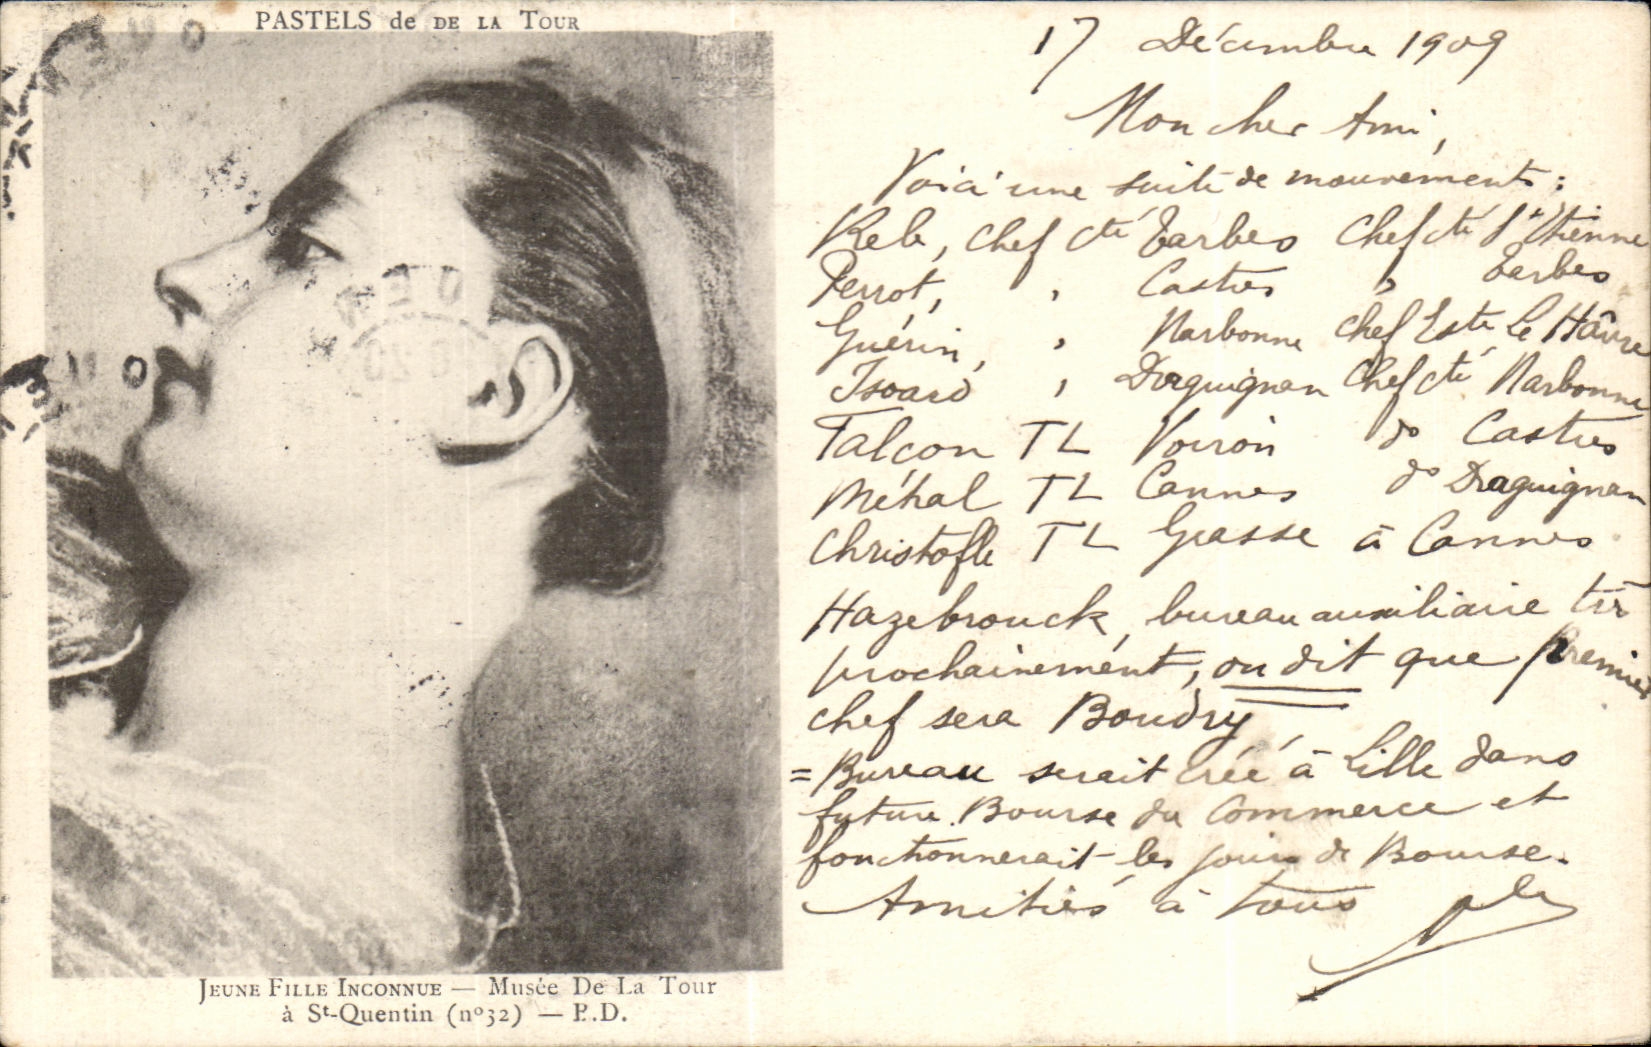 PASTELS de DE LA TOUR
JEUNE FILLE INCONNUE — Musée De La Tour
à St-Quentin (nº32) — P.D.
17 Décembre 1909
Mon cher Ami,
Voici une suite de mouvements :
Reb, chef cté Tarbes Chef cté St Etienne
Perrot, " Castres " Tarbes
Guérin, " Narbonne Chef Este Le Hâvre
Isoard " Draguignan Chef cté Narbonne
Falcon TL Voiron do Castres
Méhal TL Cannes do Draguignan
Christofle TL Grasse à Cannes
Hazebrouck, bureau auxiliaire
prochainement, on dit que premier
chef sera Boudry
= Bureau serait créé à Lille dans
future Bourse du Commerce et
fonctionnerait les jours de Bourse.
Amitiés à tous